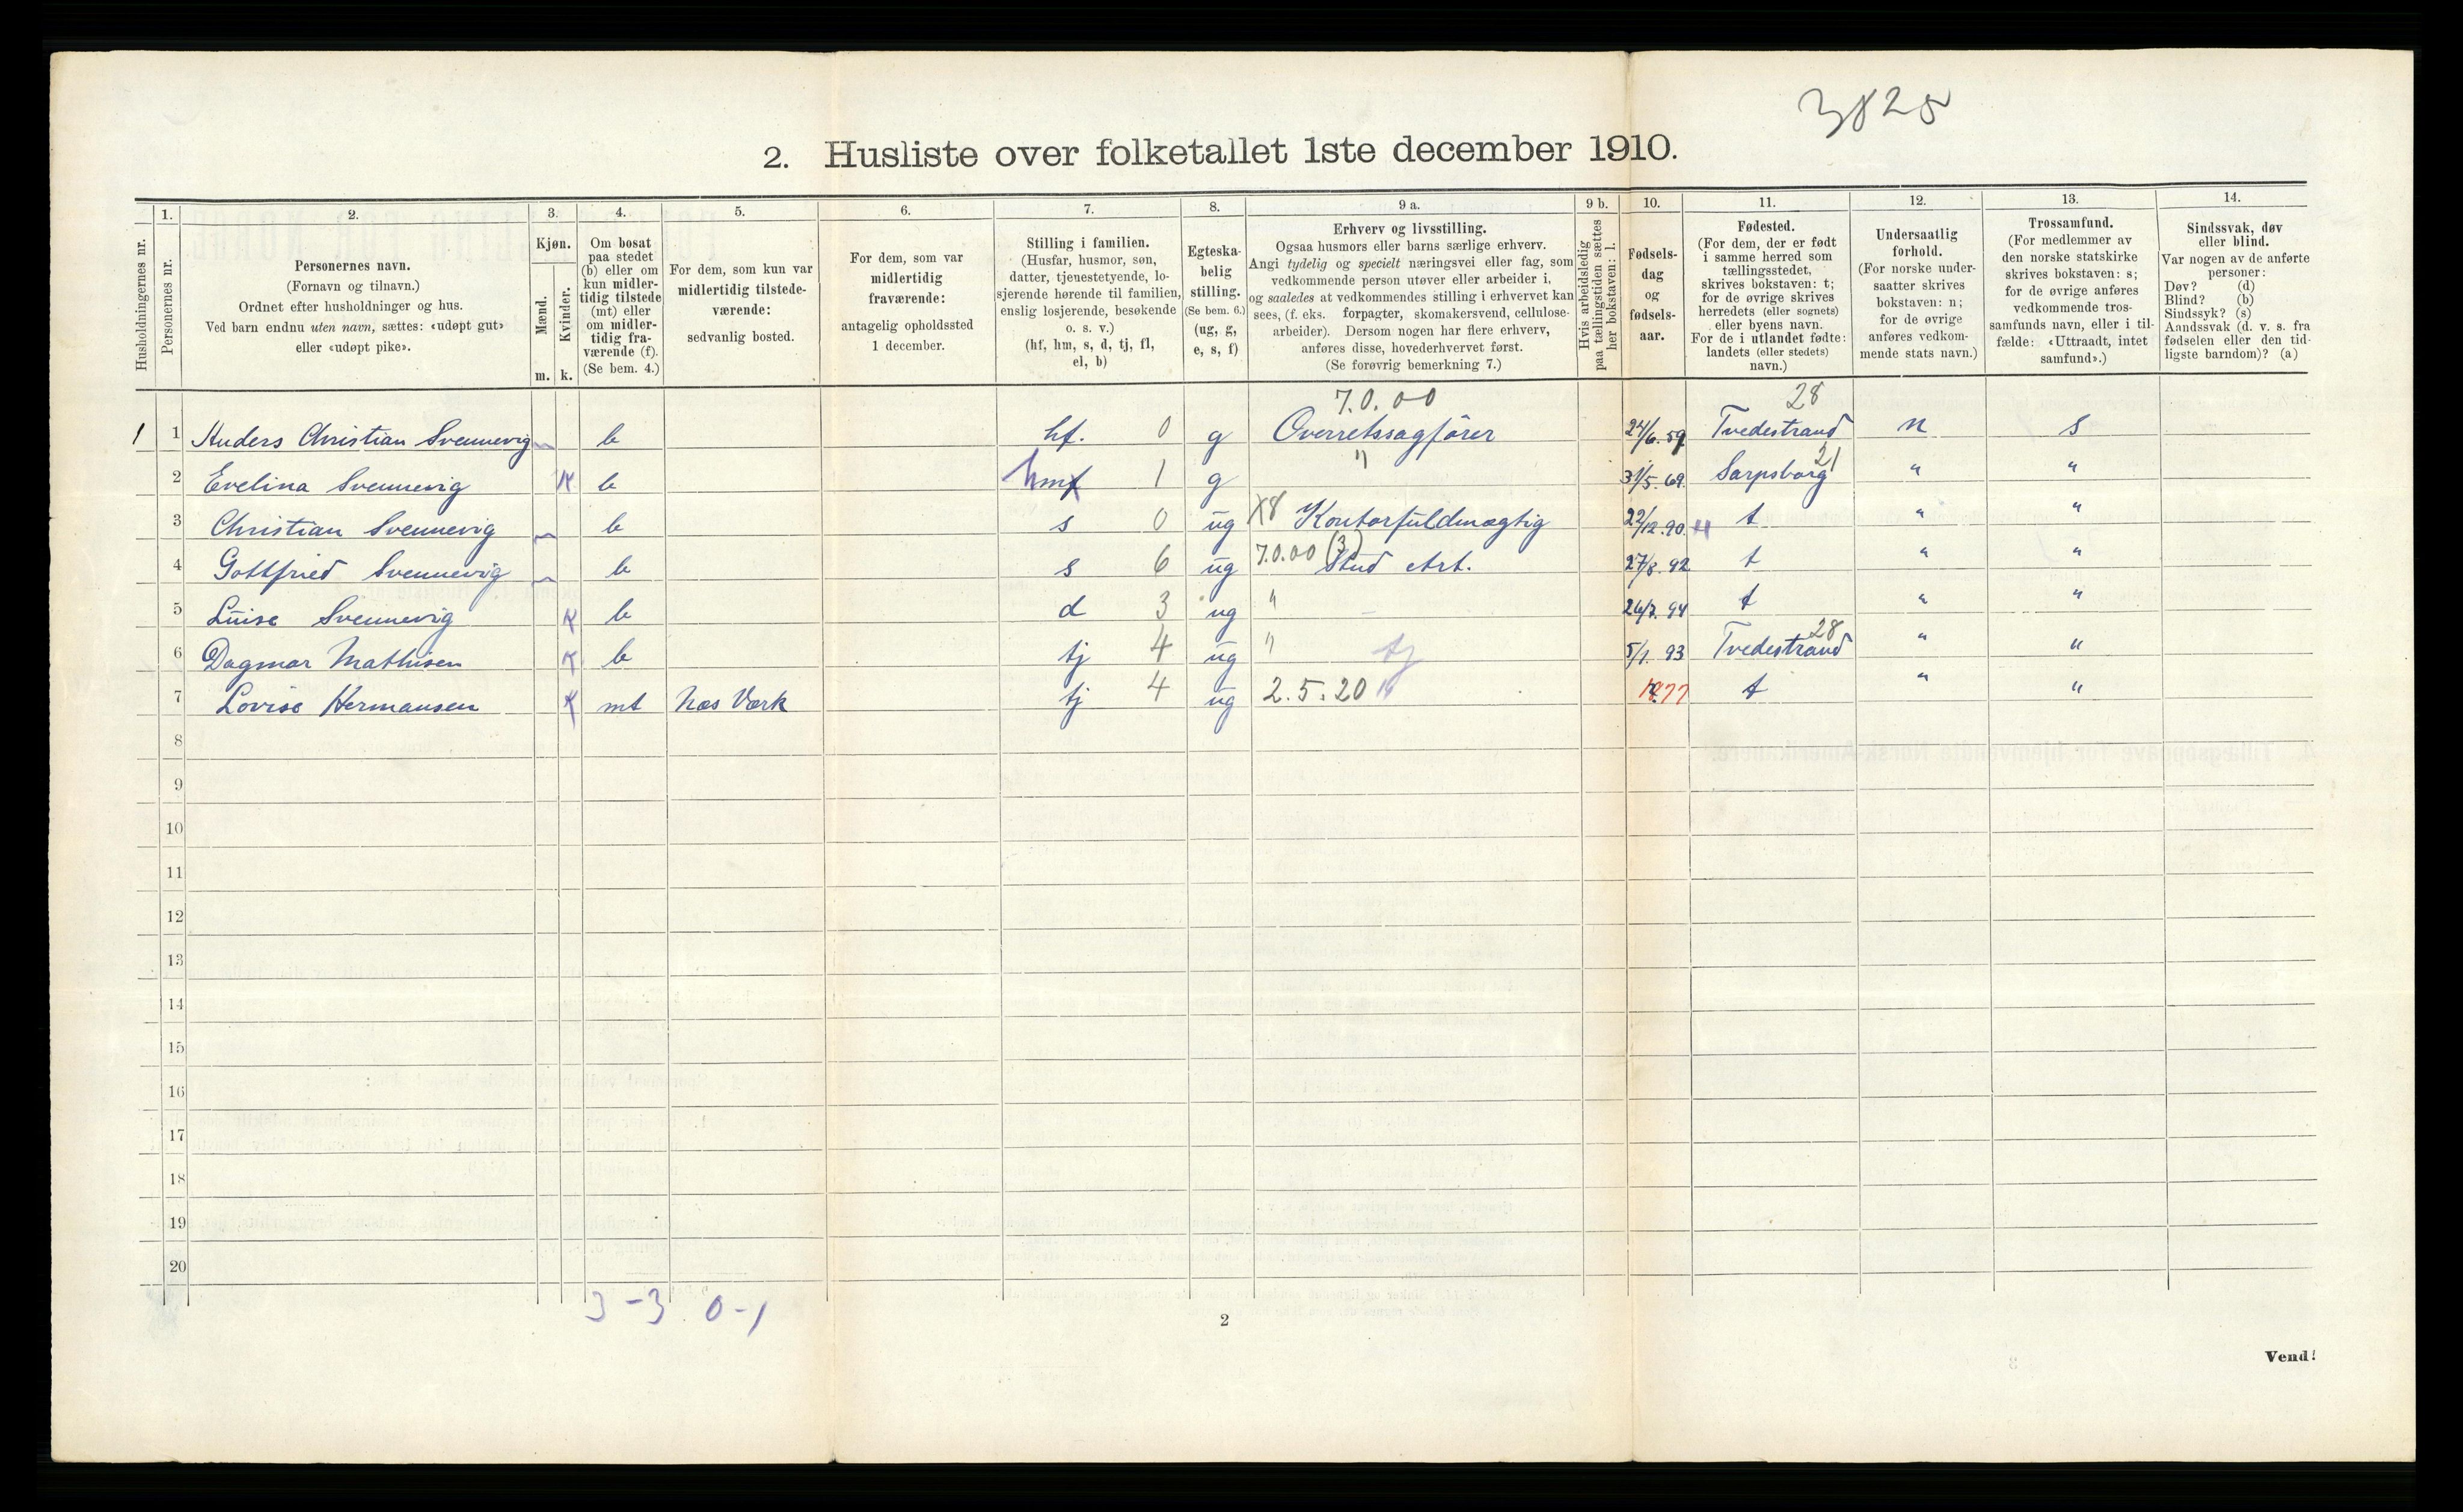 3825
2. Husliste over folketallet 1ste december 1910.
Husholdningernes nr.
1.
Personernes nr.
2.
Personernes navn.
(Fornavn og tilnavn.)
Ordnet efter husholdninger og hus.
Ved barn endnu uten navn, sættes: «udøpt gut»
eller «udøpt pike».
3.
Kjøn.
Mænd.
Kvinder.
m. k.
4.
Om bosat
paa stedet
(b) eller om
kun midler-
tidig tilstede
(mt) eller
om midler-
tidig fra-
værende (f).
(Se bem. 4.)
5.
For dem, som kun var
midlertidig tilstede-
værende:
sedvanlig bosted.
6.
For dem, som var
midlertidig
fraværende:
antagelig opholdssted
1 december.
7.
Stilling i familien.
(Husfar, husmor, søn,
datter, tjenestetyende, lo-
sjerende hørende til familien,
enslig losjerende, besøkende
o. s. v.)
(hf, hm, s, d, tj, fl,
el, b)
8.
Egteska-
belig
stilling.
(Se bem. 6.)
(ug, g,
e, s, f)
9 a.
Erhverv og livsstilling.
Ogsaa husmors eller barns særlige erhverv.
Angi tydelig og specielt næringsvei eller fag, som
vedkommende person utøver eller arbeider i,
og saaledes at vedkommendes stilling i erhvervet kan
sees, (f. eks. forpagter, skomakersvend, cellulose-
arbeider). Dersom nogen har flere erhverv,
anføres disse, hovederhvervet først.
(Se forøvrig bemerkning 7.)
9 b.
Hvis arbeidsledig
paa tællingstiden sættes
her bokstaven: l.
10.
Fødsels-
dag
og
fødsels-
aar.
11.
Fødested.
(For dem, der er født
i samme herred som
tællingsstedet,
skrives bokstaven: t;
for de øvrige skrives
herredets (eller sognets)
eller byens navn.
For de i utlandet fødte:
landets (eller stedets)
navn.)
12.
Undersaatlig
forhold.
(For norske under-
saatter skrives
bokstaven: n;
for de øvrige
anføres vedkom-
mende stats navn.)
13.
Trossamfund.
(For medlemmer av
den norske statskirke
skrives bokstaven: s;
for de øvrige anføres
vedkommende tros-
samfunds navn, eller i til-
fælde: «Uttraadt, intet
samfund».)
14.
Sindssvak, døv
eller blind.
Var nogen av de anførte
personer:
Døv? (d)
Blind? (b)
Sindssyk? (s)
Aandssvak (d. v. s. fra
fødselen eller den tid-
ligste barndom)? (a)
7.0.00 28
1 1 Anders Christian Svennevig b hf. 0 g Overretssagfører 24/6.59 Tvedestrand n s
2 Evelina Svennevig K b hm 1 g " 31/5.69 Sarpsborg 21 " "
3 Christian Svennevig b s 0 ug X8 Kontorfuldmægtig 22/12.90 t " "
4 Gottfried Svennevig b s 6 ug 7.0.00 (3) Stud Art. 27/8.92 t " "
5 Luise Svennevig K b d 3 ug " 26/7.94 t " "
6 Dagmar Mathisen K b tj 4 ug " tj 5/1.93 Tvedestrand 28 " "
7 Lovise Hermansen K mt Næs Værk tj 4 ug 2.5.20 1877 t " "
8
9
10
11
12
13
14
15
16
17
18
19
20
3-3 0-1
2
Vend!